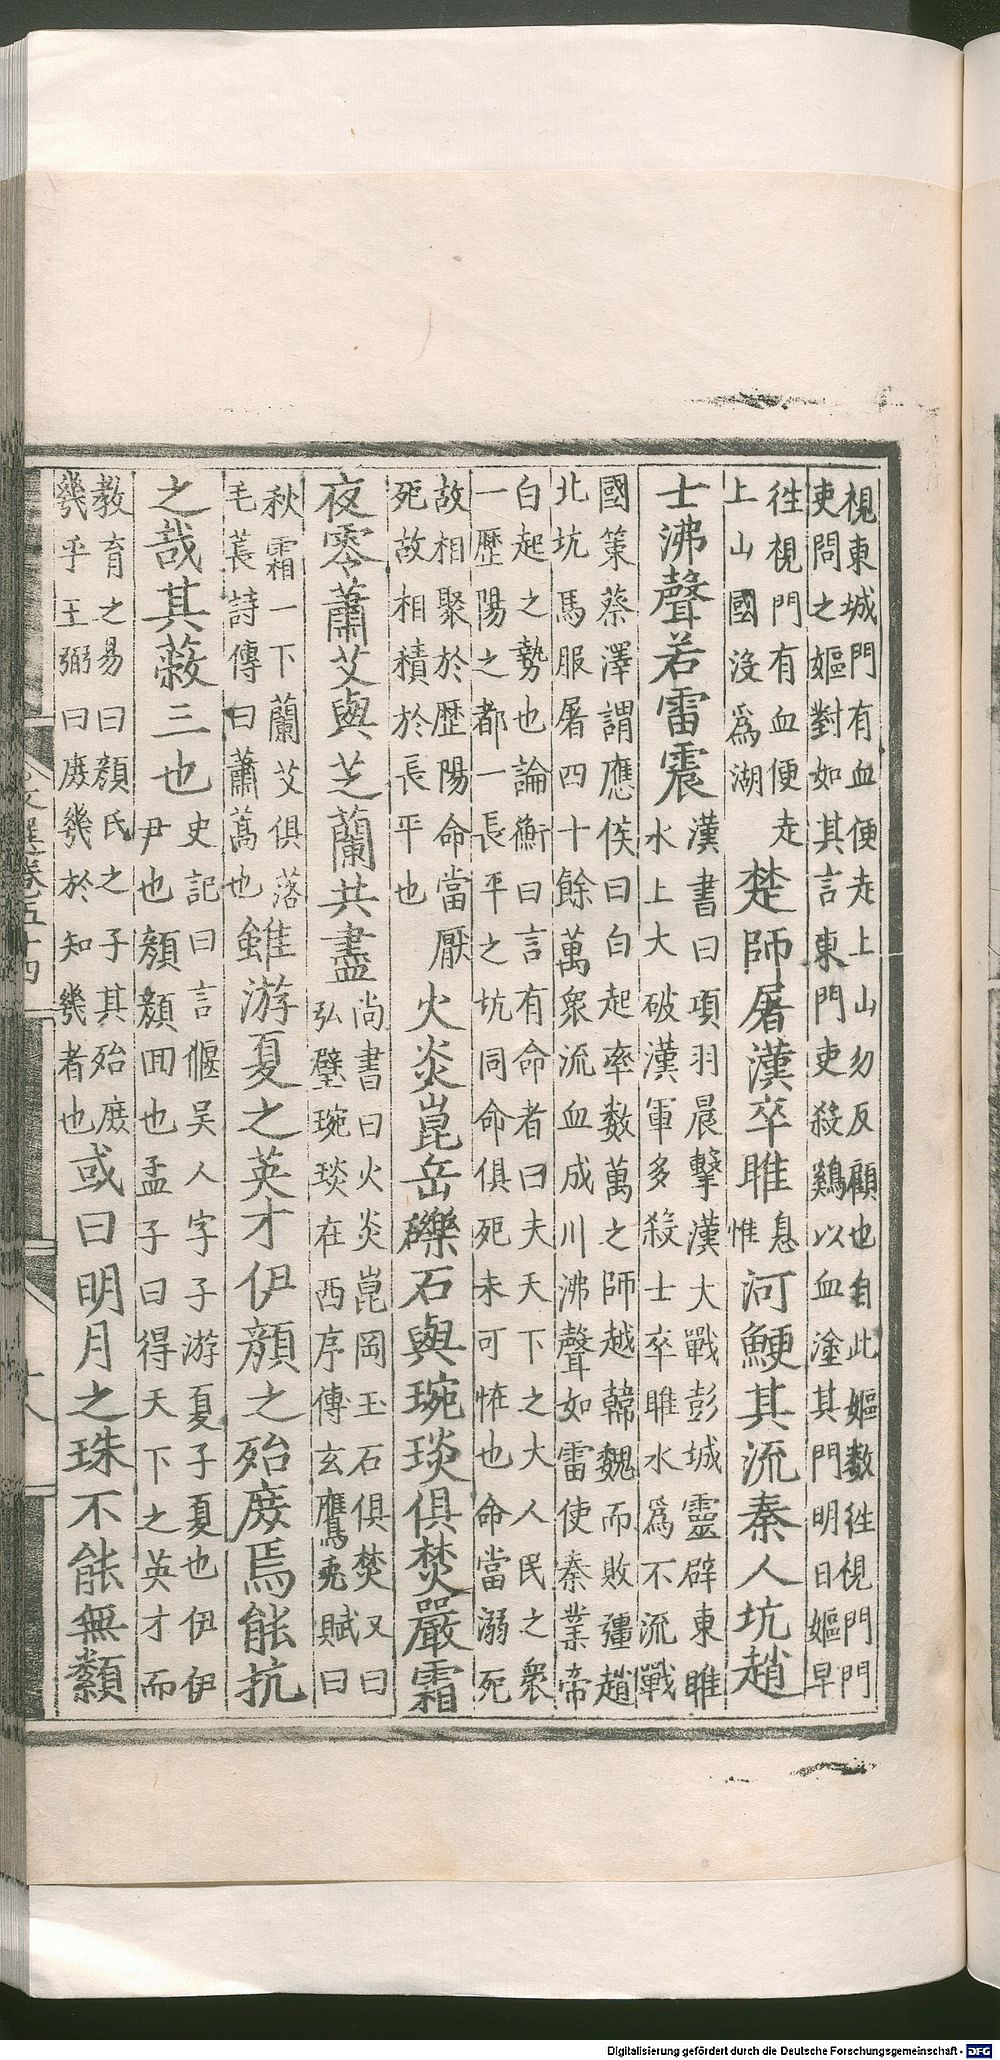 視東城門有血便走上山勿反顧也自此嫗數徃視門門
吏問之嫗對如其言東門吏殺鷄以血塗其門明日嫗早
徃視門有血便走
上山國沒爲湖
楚師屠漢卒睢
息惟
河鯁其流秦人坑趙
士沸聲若雷震
漢書曰項羽晨擊漢大戰彭城靈辟東睢
水上大破漢軍多殺士卒睢水爲不流戰
國策蔡澤謂應侯曰白起率數萬之師越韓魏而敗彊趙
北坑馬服屠四十餘萬衆流血成川沸聲如雷使秦業帝
白起之勢也論衡曰言有命者曰夫天下之大人民之衆
一歷陽之都一長平之坑同命俱死未可恠也命當溺死
故相聚於歷陽命當厭
死故相積於長平也
火炎崑岳礫石與琬琰俱焚嚴霜
夜零蕭艾與芝蘭共盡
尚書曰火炎崑岡玉石俱焚又曰
弘璧琬琰在西序傳玄鷹兎賦曰
秋霜一下蘭艾俱落
毛萇詩傳曰蕭蒿也
雖游夏之英才伊顔之殆庶焉能抗
之哉其蔽三也
史記曰言偃吴人字子游夏子夏也伊伊
尹也顔顔回也孟子曰得天下之英才而
教育之易曰顔氏之子其殆庶
幾乎王弼曰庶幾於知幾者也
或曰明月之珠不能無纇
文選卷五十四
Digitalisierung gefördert durch die Deutsche Forschungsgemeinschaft - DFG